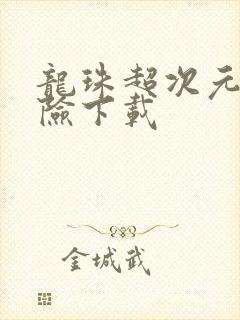 龍珠超次元
險下載
金城武